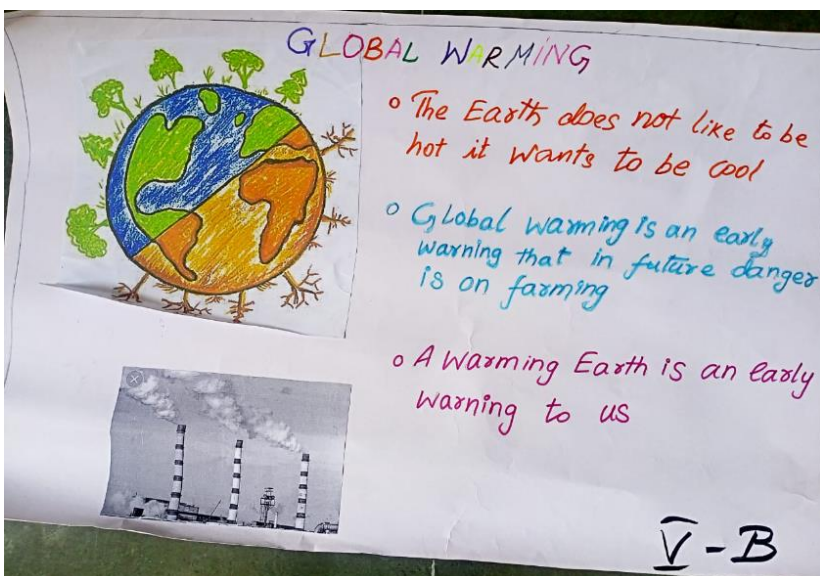 GLOBAL WARMING
The Earth does not like to be
hot it wants to be cool
Global warming is an early
warning that in future danger
is on farming
A Warming Earth is an early
warning to us
V - B